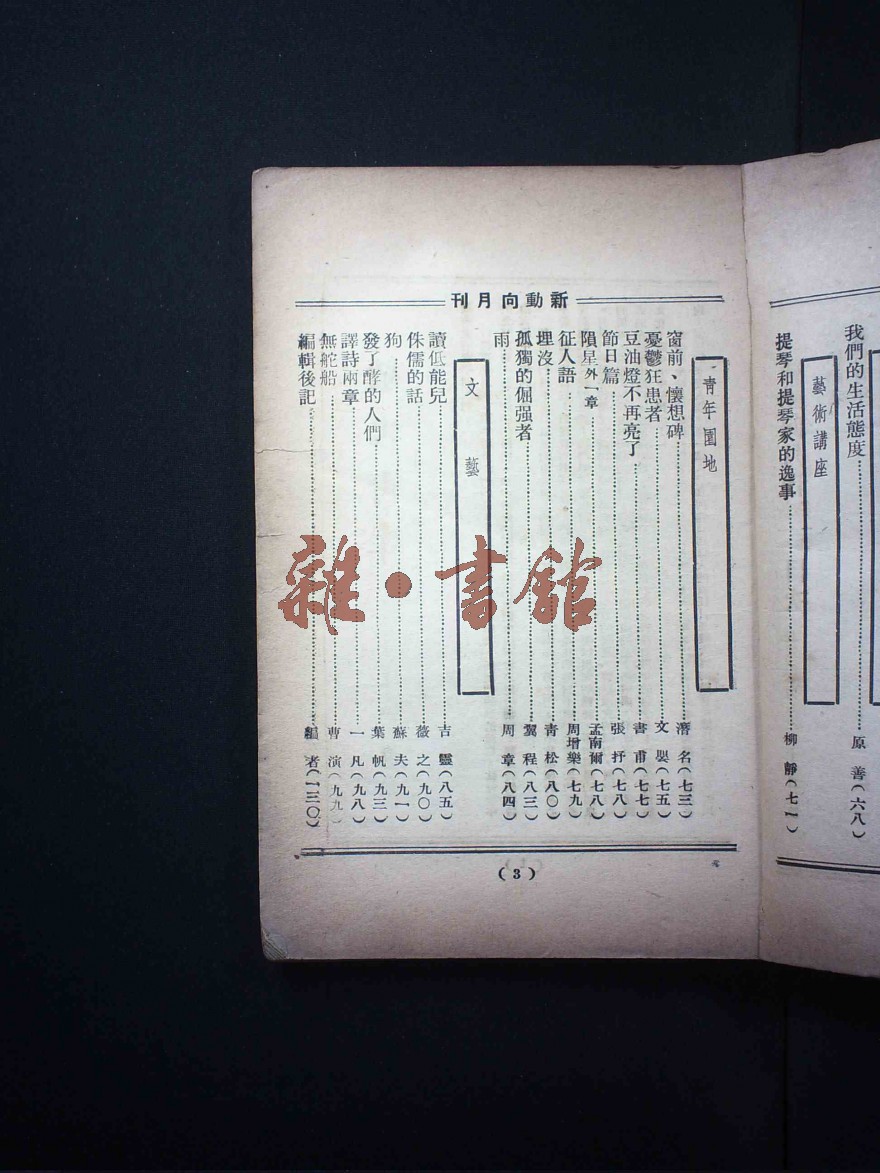 我們的生活態度……原　善（六八）
藝術講座
提琴和提琴家的逸事……柳　靜（七一）
新動向月刊
青年園地
窗前、懷想碑……潛　名（七三）
憂鬱狂患者……文　㛦（七五）
豆油燈不再亮了……書　甫（七七）
節日篇……張　抒（七八）
隕星外一章……孟南爾（七八）
征人語……周增樂（七九）
埋沒……青　松（八〇）
孤獨的倔强者……翼　程（八三）
雨……周　章（八四）
文　藝
讀低能兒……吉　靈（八五）
侏儒的話……薇　之（九〇）
狗……蘇　夫（九一）
發了酵的人們……葉　帆（九三）
譯詩兩章……一　凡（九八）
無舵船……曹　演（九九）
編輯後記……編　者（一三〇）
（3）
雜·書館